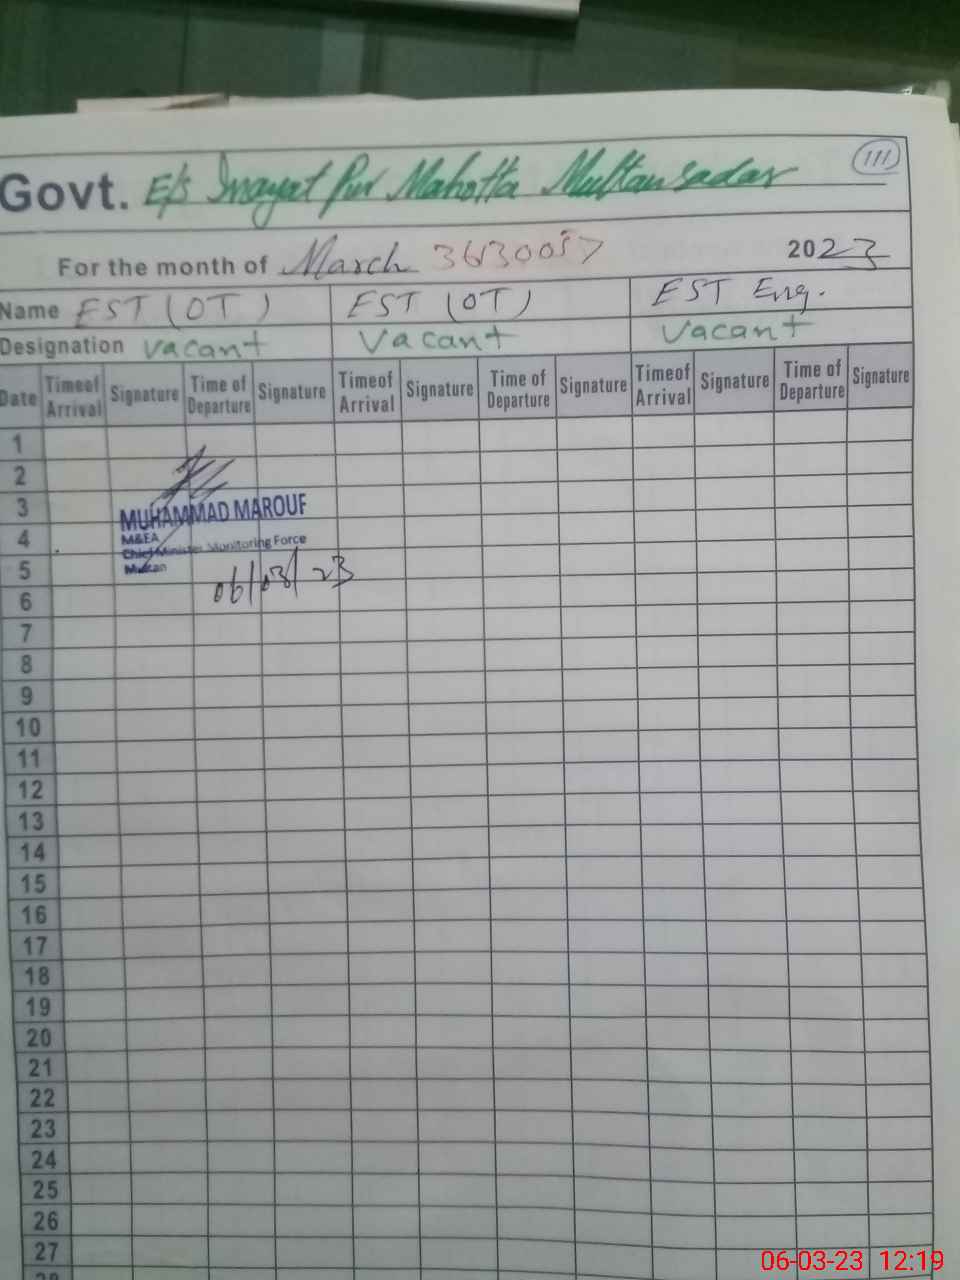 111
Govt. E/S Inayat Pur Mahotta Multan sadar
For the month of March 36130057 2023
Name EST (OT) EST (OT) EST Eng.
Designation vacant vacant vacant
Date Timeof Arrival Signature Time of Departure Signature Timeof Arrival Signature Time of Departure Signature Timeof Arrival Signature Time of Departure Signature
1
2
3
MUHAMMAD MAROUF
4
M&EA
Chief Minister Monitoring Force
5
Multan
06/03/23
6
7
8
9
10
11
12
13
14
15
16
17
18
19
20
21
22
23
24
25
26
27
28
06-03-23 12:19